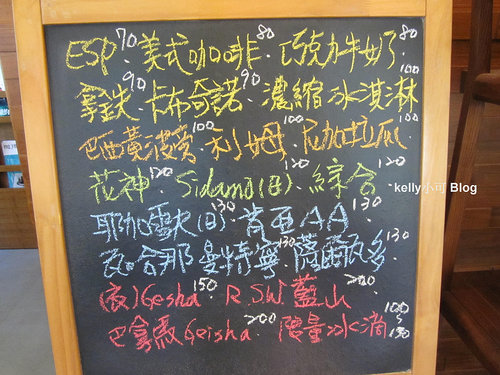 ESP 70 美式咖啡 80 巧克力牛奶 80
拿鐵 90 卡布奇諾 90 濃縮冰淇淋 100
巴西黃波旁 100 利姆 100 尼加拉瓜 100
花神 120 Sidamo(日) 120 綜合 120
kelly小可 Blog
耶加雪夫(日) 130 肯亞AA 130
瓦哈那 曼特寧 130 薩爾瓦多 130
(衣)Gesha 150 R.S.W. 藍山 200
巴拿馬Geisha 200 限量冰滴 100~130